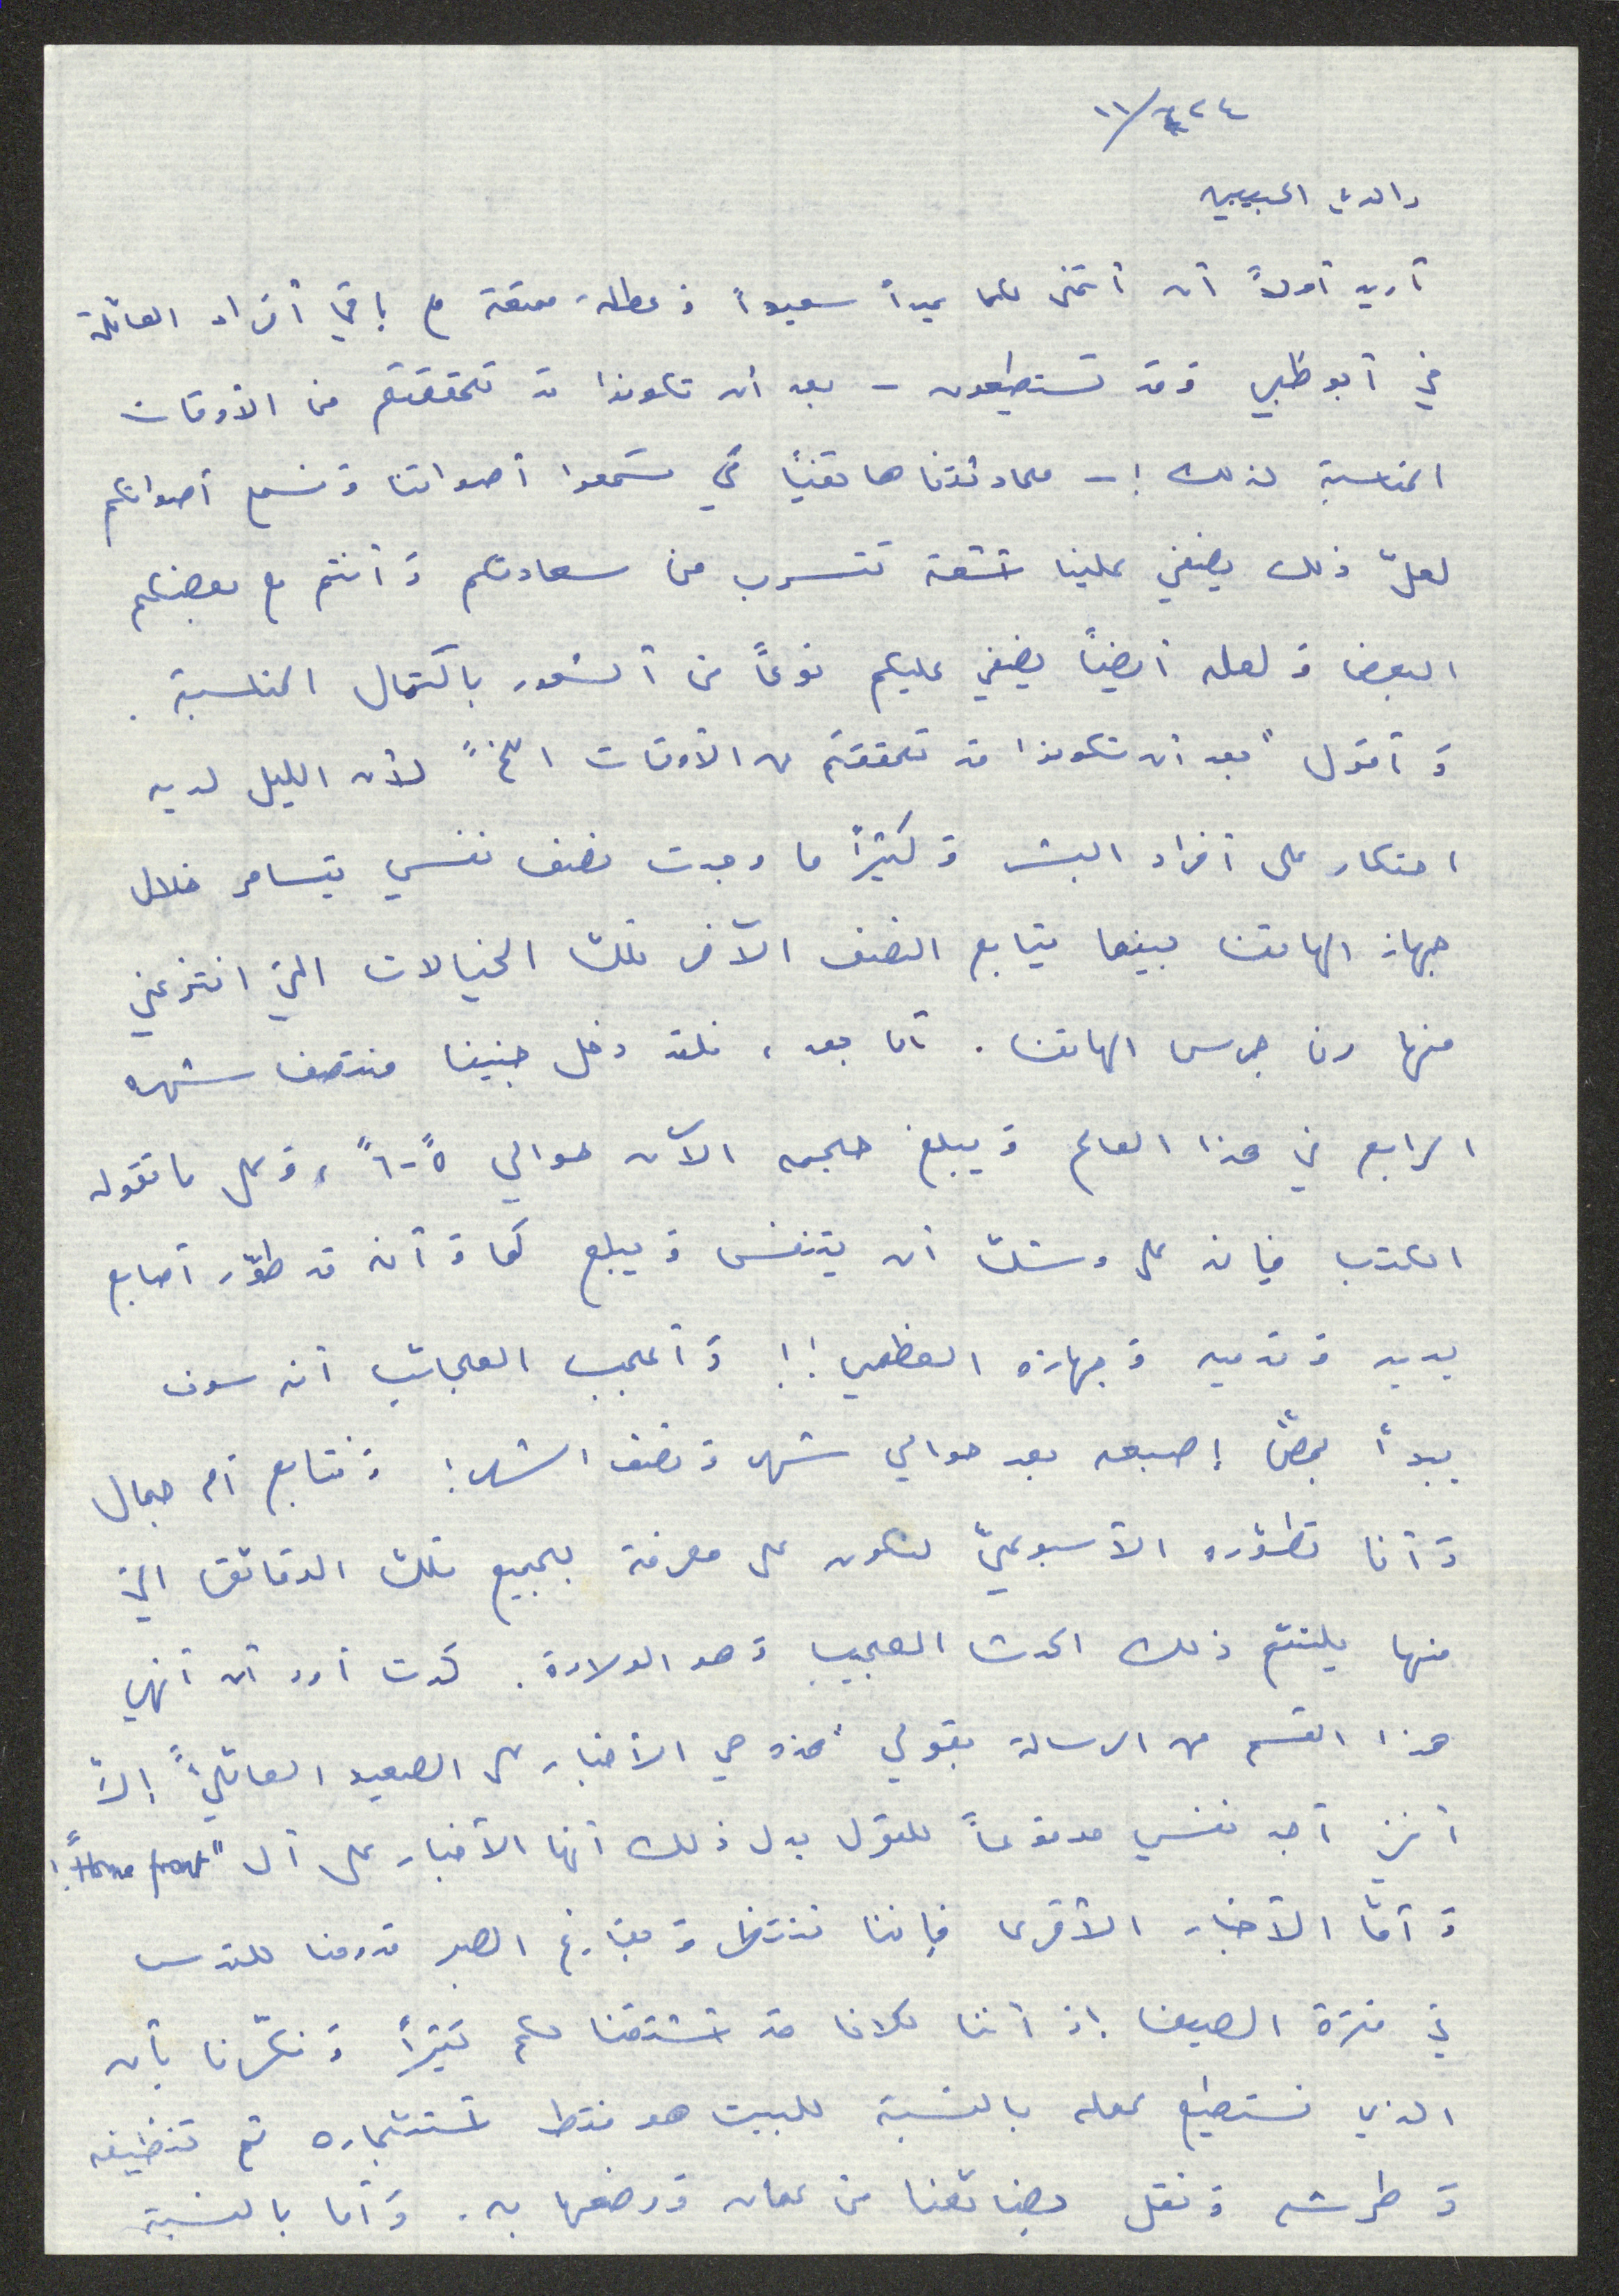 ١١/٢٤
والديّ الحبيبين
أريد أولاً أن أتمنى لكما عيداً سعيداً وعطلة ممتعة مع باقي أفراد العائلة
في أبو ظبي وقد تستطيعون - بعد أن تكونوا قد تحققتم من الأوقات
المناسبة لذلك! - محادثتنا هاتفيّاً كي تسمعوا أصواتنا ونسمع أصواتكم
لعلّ ذلك يضفي علينا أشعة تتسرب من سعادتكم وأنتم مع بعضكم
البعض ولعله أيضاً يضفي عليكم نوعاً من الشعور باكتمال المناسبة.
وأقول "بعد أن تكونوا قد تحققتم من الأوقات الخ" لأن الليل لديه
احتكار على أفراد البشر وكثيراً ما وجدت نصف نفسي يتسامر خلال
جهاز الهاتف بينما يتابع النصف الآخر تلك الخيالات التي انتزعني
منها رن جرس الهاتف. أما بعد، فلقد دخل جنيننا منتصف شهره
الرابع في هذا العالم ويبلغ حجمه الآن حوالي ٥"-٦"، وعلى ما تقوله
الكتب فإنه على وشك أن يتنفس ويبلع كما وأنه قد طوّر أصابع
يديه وقدميه وجهازه العظمي!! وأعجب العجائب أنه سوف
يبدأ بمصّ إصبعه بعد حوالي شهر ونصف الشهر! ونتابع أم جمال
وأنا تطوّره الأسبوعيّ لنكون على معرفة بجميع تلك الدقائق التي
منها يلتئم ذلك الحدث العجيب وهو الولادة. كدت أود أن أنهي
هذا القسم من الرسالة بقولي "هذه هي الأخبار على الصعيد العائلي" إلاّ
أنني أجد نفسي مدفوعاً للقول بدل ذلك أنها الأخبار على ال "Home front"!
وأمّا الأخبار الأخرى فإننا ننتظر وبفارغ الصبر قدومنا للقدس
في فترة الصيف إذ أننا كلانا قد اشتقنا لكم كثيراً وفكّرنا بأن
الذي نستطيع عمله بالنسبة للبيت هو فقط استئجاره ثم تنظيفه
وطرشه ونقل بضائعنا من عمان ووضعها به. وأما بالنسبة